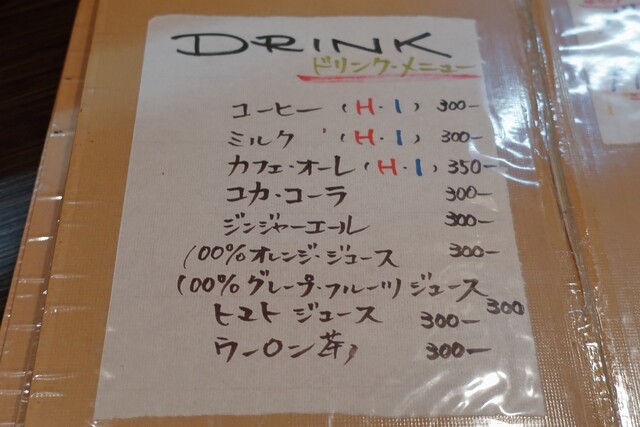 DRINK
ドリンク・メニュー
コーヒー (H・I) 300-
ミルク (H・I) 300-
カフェ・オーレ (H・I) 350-
コカ・コーラ 300-
ジンジャーエール 300-
100%オレンジ・ジュース 300-
100%グレープ・フルーツ ジュース 300
トマト ジュース 300-
ウーロン茶 300-